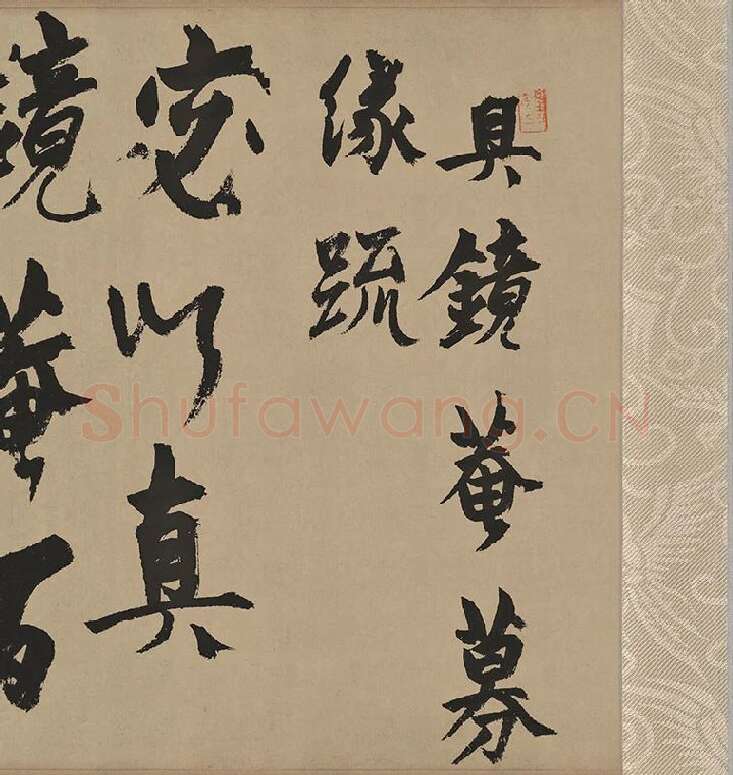 具鏡菴募
緣疏
以真
鏡菴
Shufawang.CN